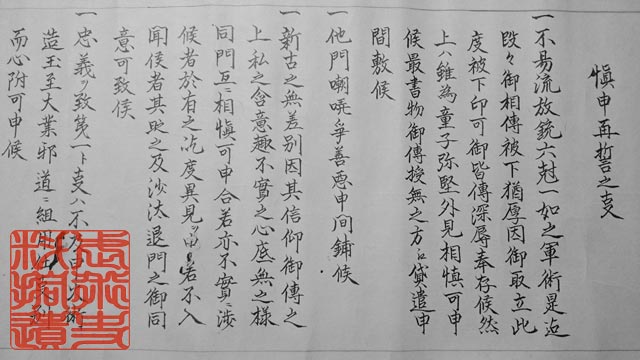 慎申再誓之支
一不易流放銃六尅一如之軍術是迠
段々御相傳被下猶厚因御取立此
度被下印可御皆傳深辱奉存候然
上ハ雖為童子弥堅外見相慎可申
候最書物御傳授無之方江貸遣申
間敷候
一他門嘲哢爭善悪申间鋪候
一新古之無差別因其信仰御傳之
上私之含意趣不實之心底無之様
同門互ニ相慎可申合若亦不實ニ渉
候者於有之ハ度異見可申若不入
聞候者其段之及沙汰退門之御同
意可致候
一忠義ヲ致䓁一ト支ハ不及申
造玉至大業邪道ニ組
而心附可申候